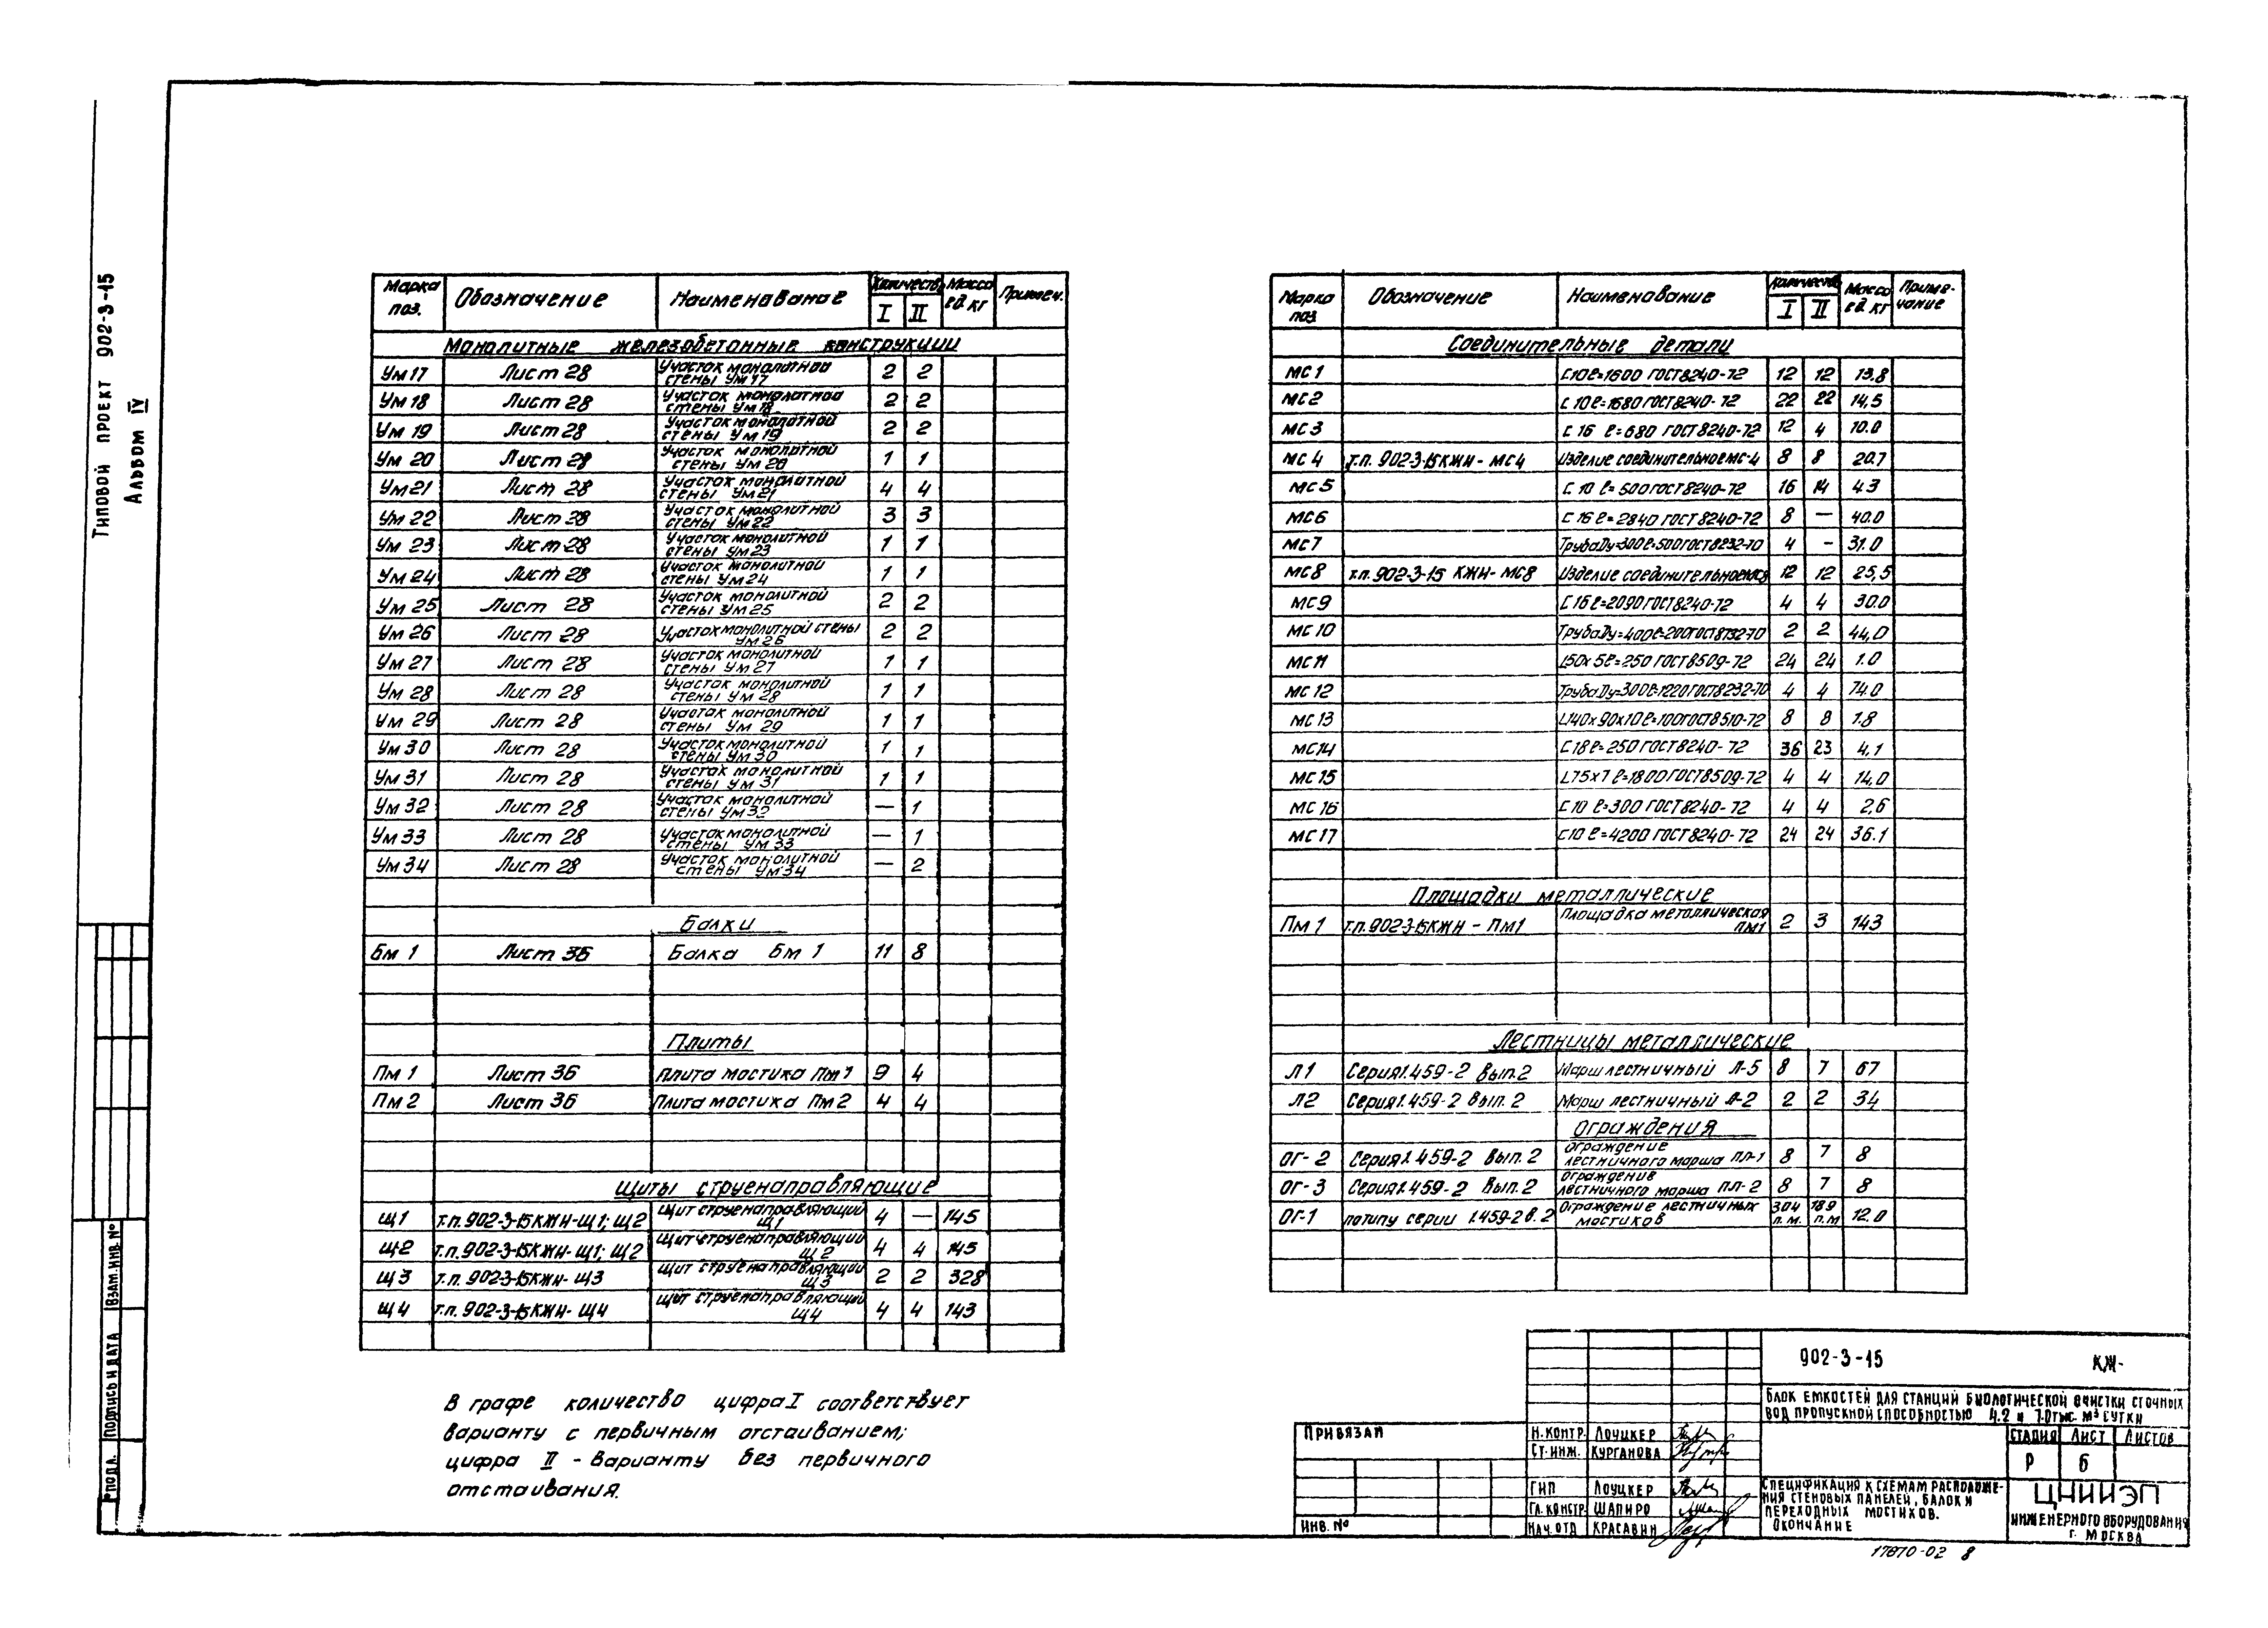 Типовой проект 902-3-15
Альбом IV
Марка поз. Обозначение Наименование Количеств. Масса ед. кг Примеч.
I II
Монолитные железобетонные конструкции
Ум 17 Лист 28 Участок монолитной стены Ум 17 2 2
Ум 18 Лист 28 Участок монолитной стены Ум 18 2 2
Ум 19 Лист 28 Участок монолитной стены Ум 19 2 2
Ум 20 Лист 28 Участок монолитной стены Ум 20 1 1
Ум 21 Лист 28 Участок монолитной стены Ум 21 4 4
Ум 22 Лист 28 Участок монолитной стены Ум 22 3 3
Ум 23 Лист 28 Участок монолитной стены Ум 23 1 1
Ум 24 Лист 28 Участок монолитной стены Ум 24 1 1
Ум 25 Лист 28 Участок монолитной стены Ум 25 2 2
Ум 26 Лист 28 Участок монолитной стены Ум 26 2 2
Ум 27 Лист 28 Участок монолитной стены Ум 27 1 1
Ум 28 Лист 28 Участок монолитной стены Ум 28 1 1
Ум 29 Лист 28 Участок монолитной стены Ум 29 1 1
Ум 30 Лист 28 Участок монолитной стены Ум 30 1 1
Ум 31 Лист 28 Участок монолитной стены Ум 31 1 1
Ум 32 Лист 28 Участок монолитной стены Ум 32 — 1
Ум 33 Лист 28 Участок монолитной стены Ум 33 — 1
Ум 34 Лист 28 Участок монолитной стены Ум 34 — 2
Балки
Бм 1 Лист 36 Балка Бм 1 11 8
Плиты
Пм 1 Лист 36 Плита мостика Пм 1 9 4
Пм 2 Лист 36 Плита мостика Пм 2 4 4
Щиты струенаправляющие
Щ1 т.п. 902-3-15 КЖИ-Щ1; Щ2 Щит струенаправляющий Щ1 4 — 145
Щ2 т.п. 902-3-15 КЖИ-Щ1; Щ2 Щит струенаправляющий Щ2 4 4 145
Щ3 т.п. 902-3-15 КЖИ-Щ3 Щит струенаправляющий Щ3 2 2 328
Щ4 т.п. 902-3-15 КЖИ-Щ4 Щит струенаправляющий Щ4 4 4 143
В графе количество цифра I соответствует
варианту с первичным отстаиванием;
цифра II - варианту без первичного
отстаивания.
Марка поз Обозначение Наименование Количеств Масса ед. кг Приме-чание
I II
Соединительные детали
МС 1 С10 ℓ=1600 ГОСТ 8240-72 12 12 13,8
МС 2 С 10 ℓ=1680 ГОСТ 8240-72 22 22 14,5
МС 3 С 16 ℓ=680 ГОСТ 8240-72 12 4 10.0
МС 4 т.п. 902-3-15 КЖИ-МС4 Изделие соединительное МС-4 8 8 20.7
МС 5 С 10 ℓ=500 ГОСТ 8240-72 16 14 4.3
МС 6 С 16 ℓ=2840 ГОСТ 8240-72 8 — 40.0
МС 7 Труба Ду=300 ℓ=500 ГОСТ 8732-70 4 - 31.0
МС 8 т.п. 902-3-15 КЖИ-МС8 Изделие соединительное МС8 12 12 25,5
МС 9 С 16 ℓ=2090 ГОСТ 8240-72 4 4 30.0
МС 10 Труба Ду=400 ℓ=200 ГОСТ 8732-70 2 2 44,0
МС 11 L50х5 ℓ=250 ГОСТ 8509-72 24 24 1.0
МС 12 Труба Ду=300 ℓ=1220 ГОСТ 8732-70 4 4 74.0
МС 13 L140х90х10 ℓ=100 ГОСТ 8510-72 8 8 1.8
МС 14 С 18 ℓ=250 ГОСТ 8240-72 36 23 4,1
МС 15 L75х7 ℓ=1800 ГОСТ 8509-72 4 4 14,0
МС 16 С 10 ℓ=300 ГОСТ 8240-72 4 4 2,6
МС 17 С 10 ℓ=4200 ГОСТ 8240-72 24 24 36.1
Площадки металлические
Пм 1 т.п. 902-3-15 КЖИ-Пм1 Площадка металлическая Пм1 2 3 143
Лестницы металлические
Л1 Серия 1.459-2 Вып. 2 Марш лестничный Л-5 8 7 67
Л2 Серия 1.459-2 Вып. 2 Марш лестничный Л-2 2 2 34
Ограждения
ОГ-2 Серия 1.459-2 Вып. 2 Ограждение лестничного марша ПЛ-1 8 7 8
ОГ-3 Серия 1.459-2 Вып. 2 Ограждение лестничного марша ПЛ-2 8 7 8
ОГ-1 по типу серии 1.459-2 в. 2 Ограждение лестничных мостиков 304 п.м. 189 п.м 12.0
902-3-15 КЖ-
Блок емкостей для станций биологической очистки сточных
вод пропускной способностью 4.2 и 7.0 тыс. м³ сутки
Стадия Лист Листов
Р 6
Спецификация к схемам расположе-
ния стеновых панелей, балок и
переходных мостиков.
Окончание
ЦНИИЭП
инженерного оборудования
г. Москва
Привязан
Инв. №
Н. контр. Лоуцкер
Ст. инж. Курганова
ГИП Лоуцкер
Гл. констр. Шапиро
Нач. отд Красавин
Взам. инв. №
Подпись и дата
№ подл.
17870-02 8